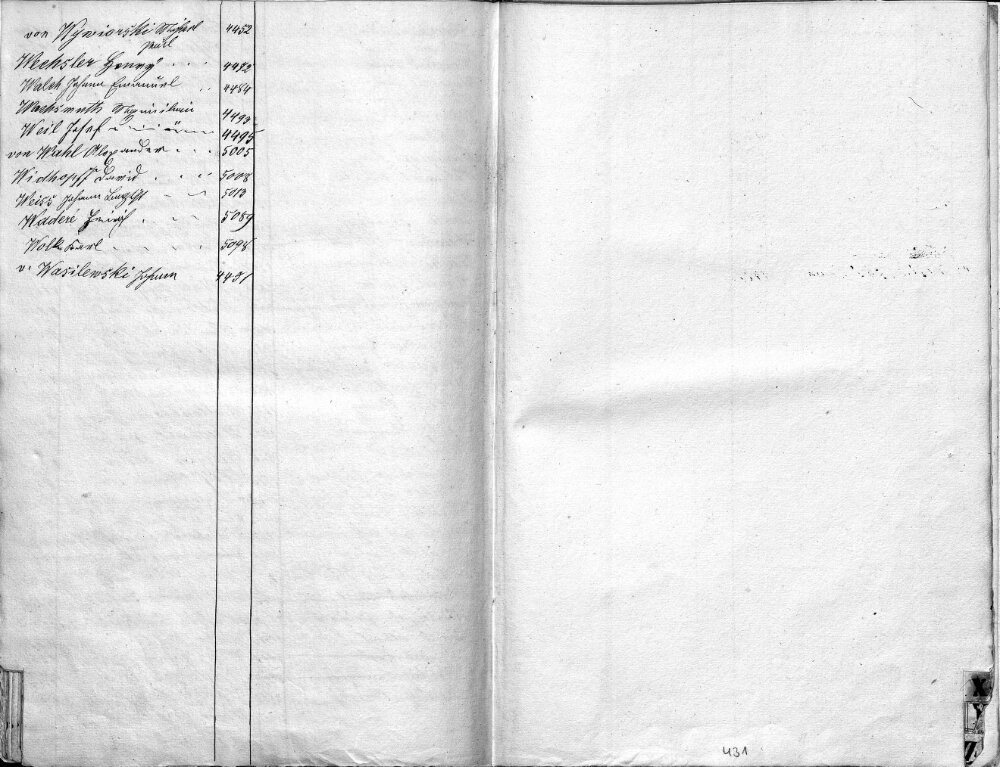 von Wywiorski Michael 4452
Karl
Wechsler Georg 4472
Walch Johann Emanuel 4484
Wachsmuth Maximilian 4493
Weil Josef 4495
von Wahl Alexander 5005
Widhopff David 5008
Weiss Johann 5013
Waderé Heinrich 5089
Wolk Karl 5098
v. Wasilewski Johann 4431
X
Y
Z
431